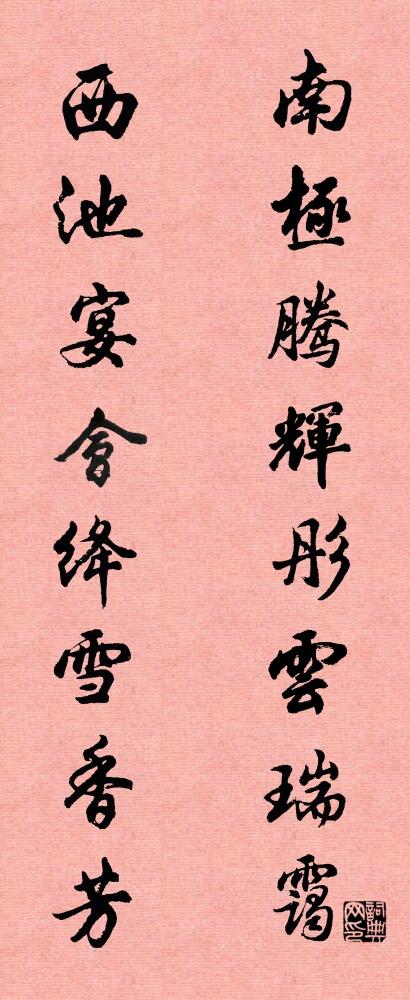 南極騰輝彤雲瑞靄
西池宴會绛雪香芳
詞典網印